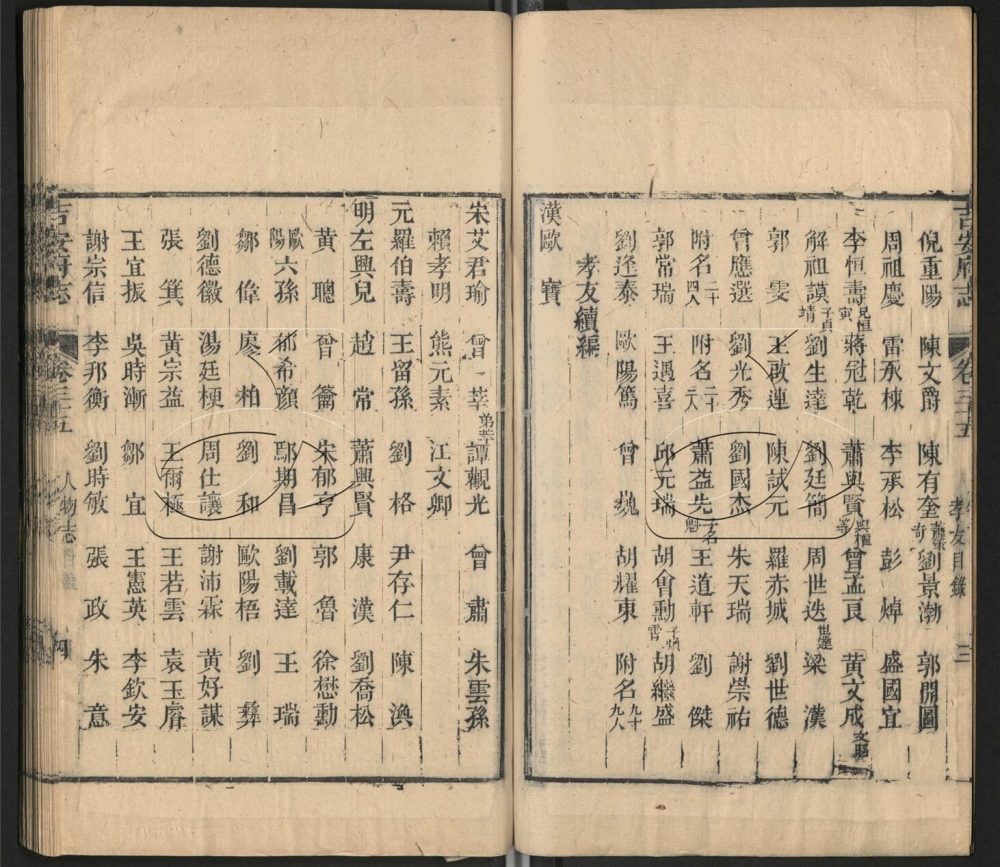 倪重陽 陳文爵 陳有奎 劉景渤 郭開圖
周祖慶 雷承棟 李承松 彭焯 盛國宜
李恒壽 兄恒寅 蔣冠乾 蕭與賢 曾孟良 黃文成
解祖謨 子貞靖 劉生達 劉廷簡 周世迭 世達 梁漢
郭雯 王敢連 陳試元 羅赤城 劉世德
曾應選 劉光秀 劉國杰 朱天瑞 謝崇祐
附名二十四人 附名二十二人 蕭益先 子名魁 王道軒 劉傑
郭常瑞 王遇喜 邱元瑞 胡會勳 胡繼盛
劉逢泰 歐陽篤 曾巍 胡耀東 附名九十九人
孝友續編
漢歐寶
吉安府志 卷三十五 孝友目錄 三
宋艾君瑜 曾莘 弟 譚觀光 曾肅 朱雲孫
賴孝明 熊元素 江文卿
元羅伯壽 王留孫 劉格 尹存仁 陳澳
明左興兒 趙常 蕭興賢 康漢 劉喬松
黃聰 曾籥 朱郁亨 郭魯 徐懋勳
歐陽六孫 郁希顏 鄢期昌 劉載達 王瑞
鄒偉 廖柏 劉和 歐陽梧 劉彝
劉德徽 湯廷梗 周仕讓 謝沛霖 黃好謀
張箕 黃宗益 王爾極 王若雲 袁玉睿
王宜振 吳時漸 鄒宜 王憲英 李欽安
謝宗信 李邦衡 劉時敏 張政 朱意
吉安府志 卷三十五 人物志 目錄 四